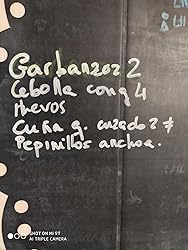 Garbanzoz 2
Cebolla cong 4
Hevos
Cuña q. curado 2 ≠
Pepinillos anchoa.
SHOT ON MI 9T
AI TRIPLE CAMERA